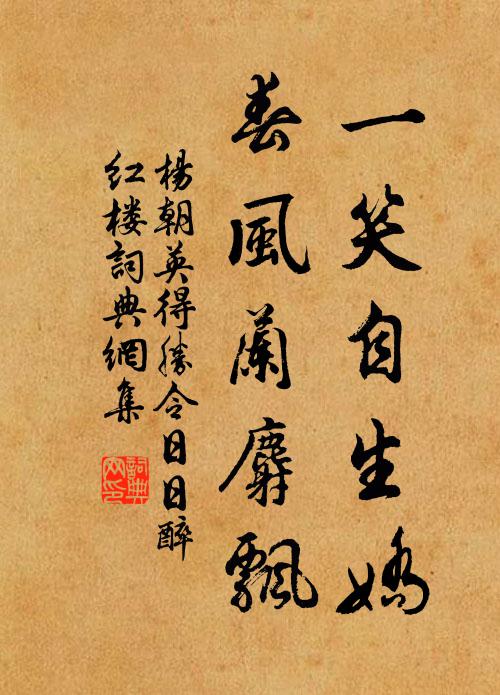 一笑自生嬌
春風蘭麝飄
楊朝英得勝令日日醉
红楼詞典網集
詞典網印